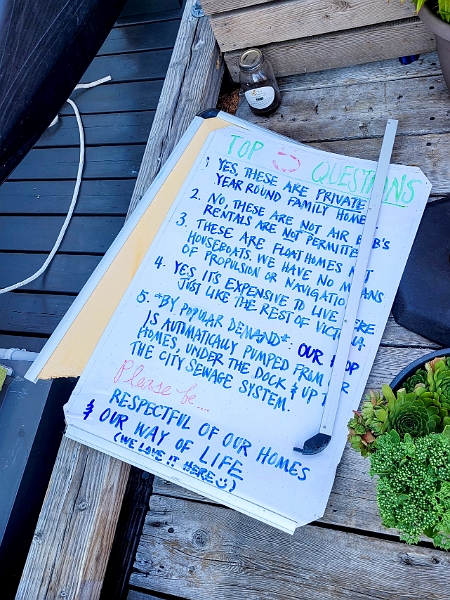 TOP 5 QUESTIONS
1 YES, THESE ARE PRIVATE
YEAR ROUND FAMILY HOME
2. NO, THESE ARE NOT AIR B
RENTALS ARE NOT PERMITTE
3. THESE ARE FLOAT HOMES
HOUSEBOATS. WE HAVE NO MEANS
OF PROPULSION OR NAVIGATIO
4. YES, IT'S EXPENSIVE TO LIVE HERE
JUST LIKE THE REST OF VICT
5. *BY POPULAR DEMAND*: OUR
IS AUTOMATICALLY PUMPED FROM
HOMES, UNDER THE DOCK, & UP T
THE CITY SEWAGE SYSTEM.
Please be....
RESPECTFUL OF OUR HOMES
& OUR WAY OF LIFE
(WE LOVE IT HERE☺)